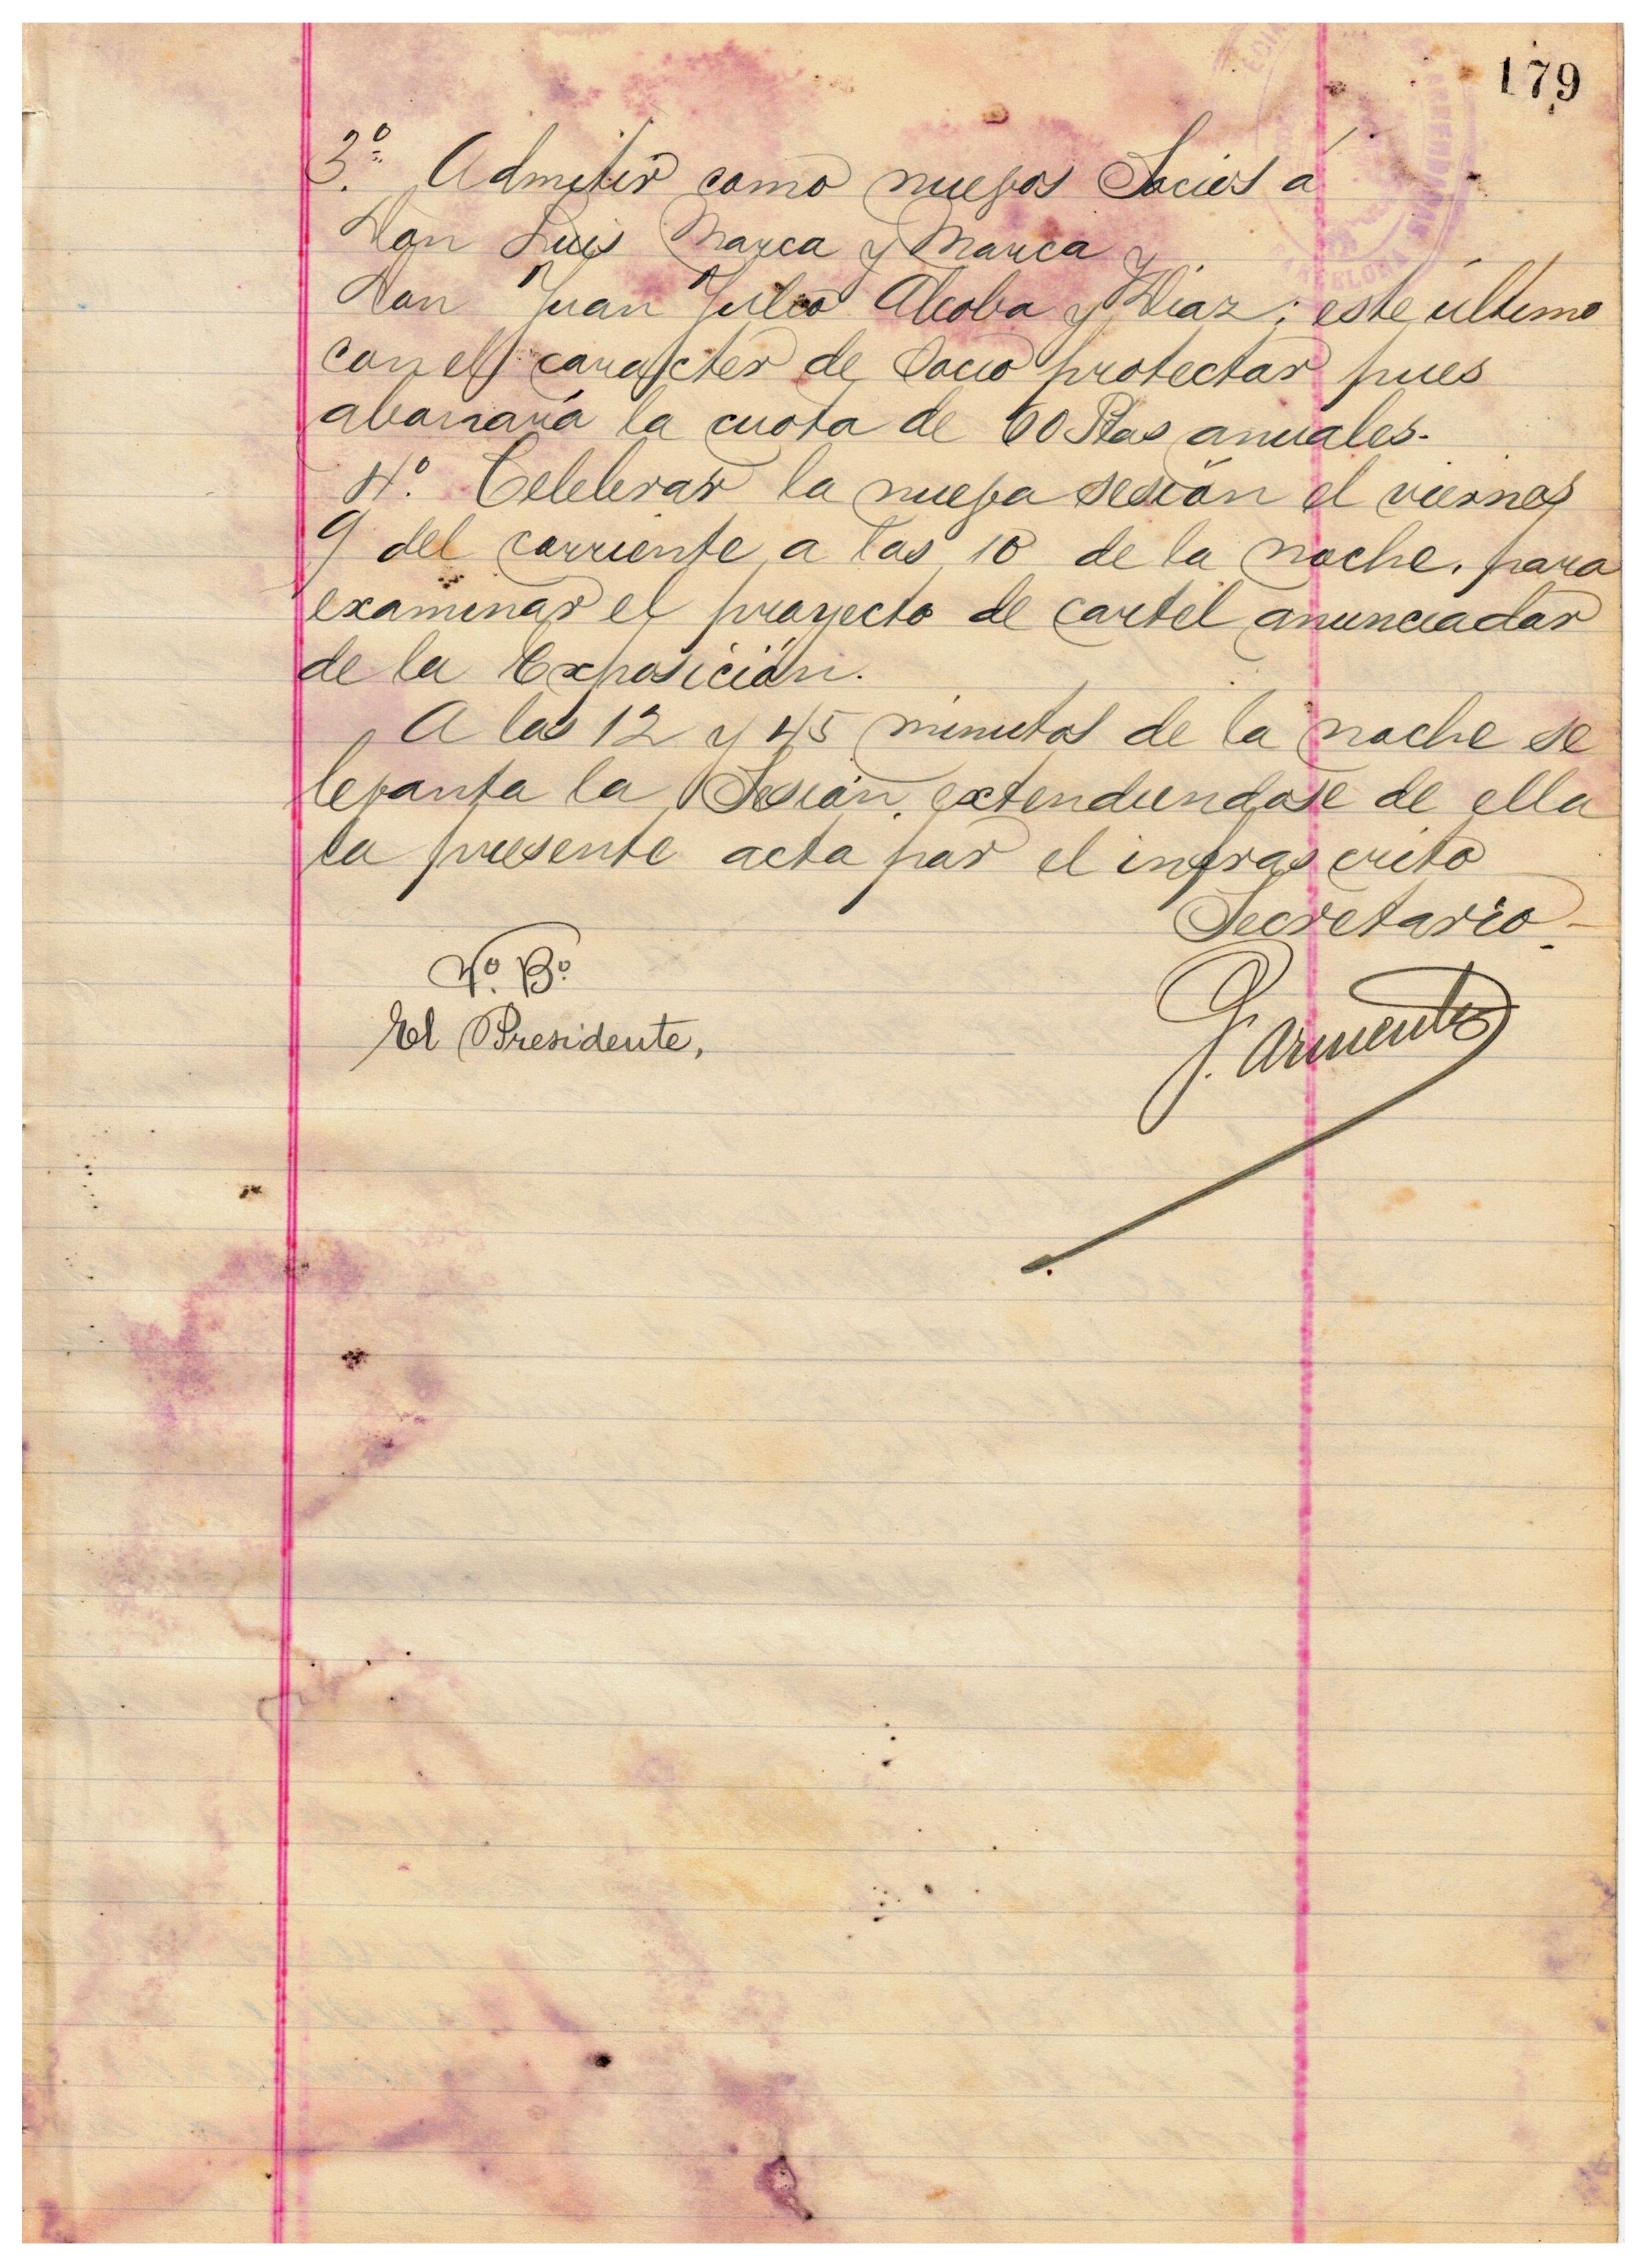 179
3º. Admitir como nuevos Socios á
Don Luis Marca y Marca y
Don Juan Julio Alcoba y Díaz; este último
con el carácter de Socio protector pues
abonará la cuota de 60 Ptas anuales.
4º. Celebrar la nueva sesión el viernes
9 del corriente a las 10 de la noche, para
examinar el proyecto de cartel anunciador
de la Exposición.
A las 12 y 45 minutos de la noche se
levanta la Sesión, extendiendose de ella
la presente acta por el infrascrito
Secretario.-
Vº. Bº.
El Presidente,
Armenter
BARCELONA